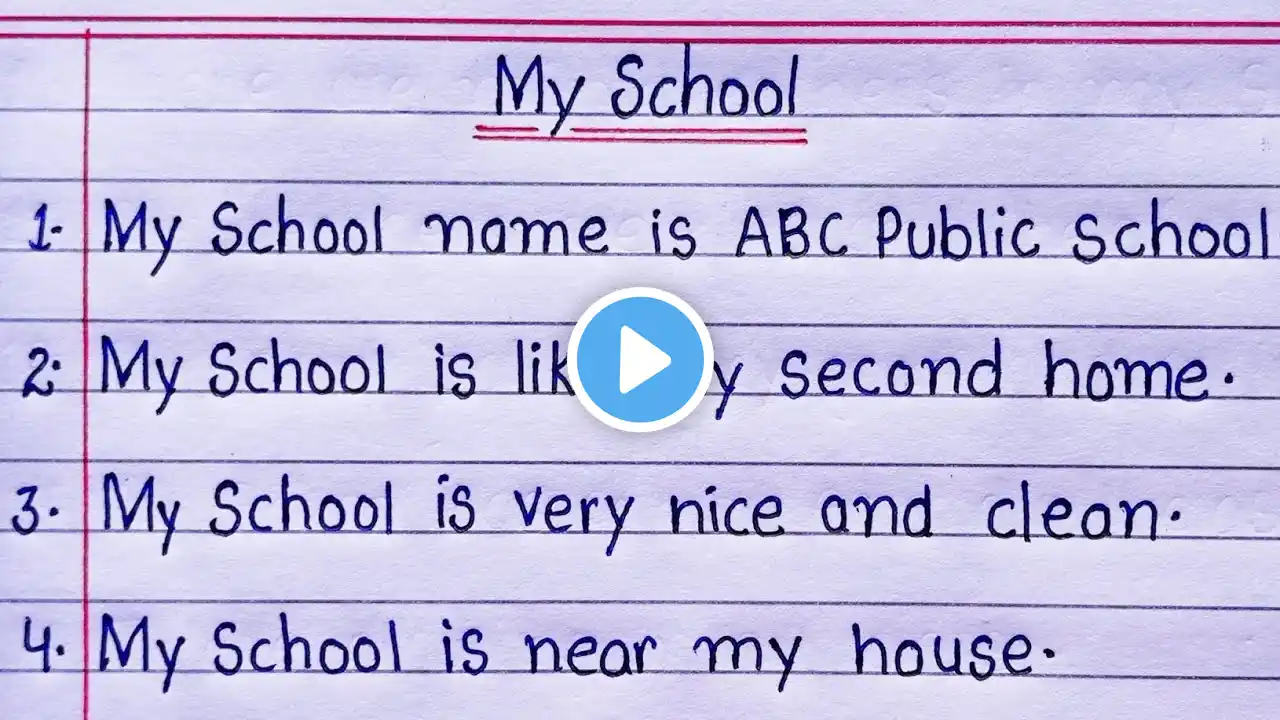 My School
1. My School name is ABC Public School
2. My School is lik y second home.
3. My School is very nice and clean.
4. My School is near my house.